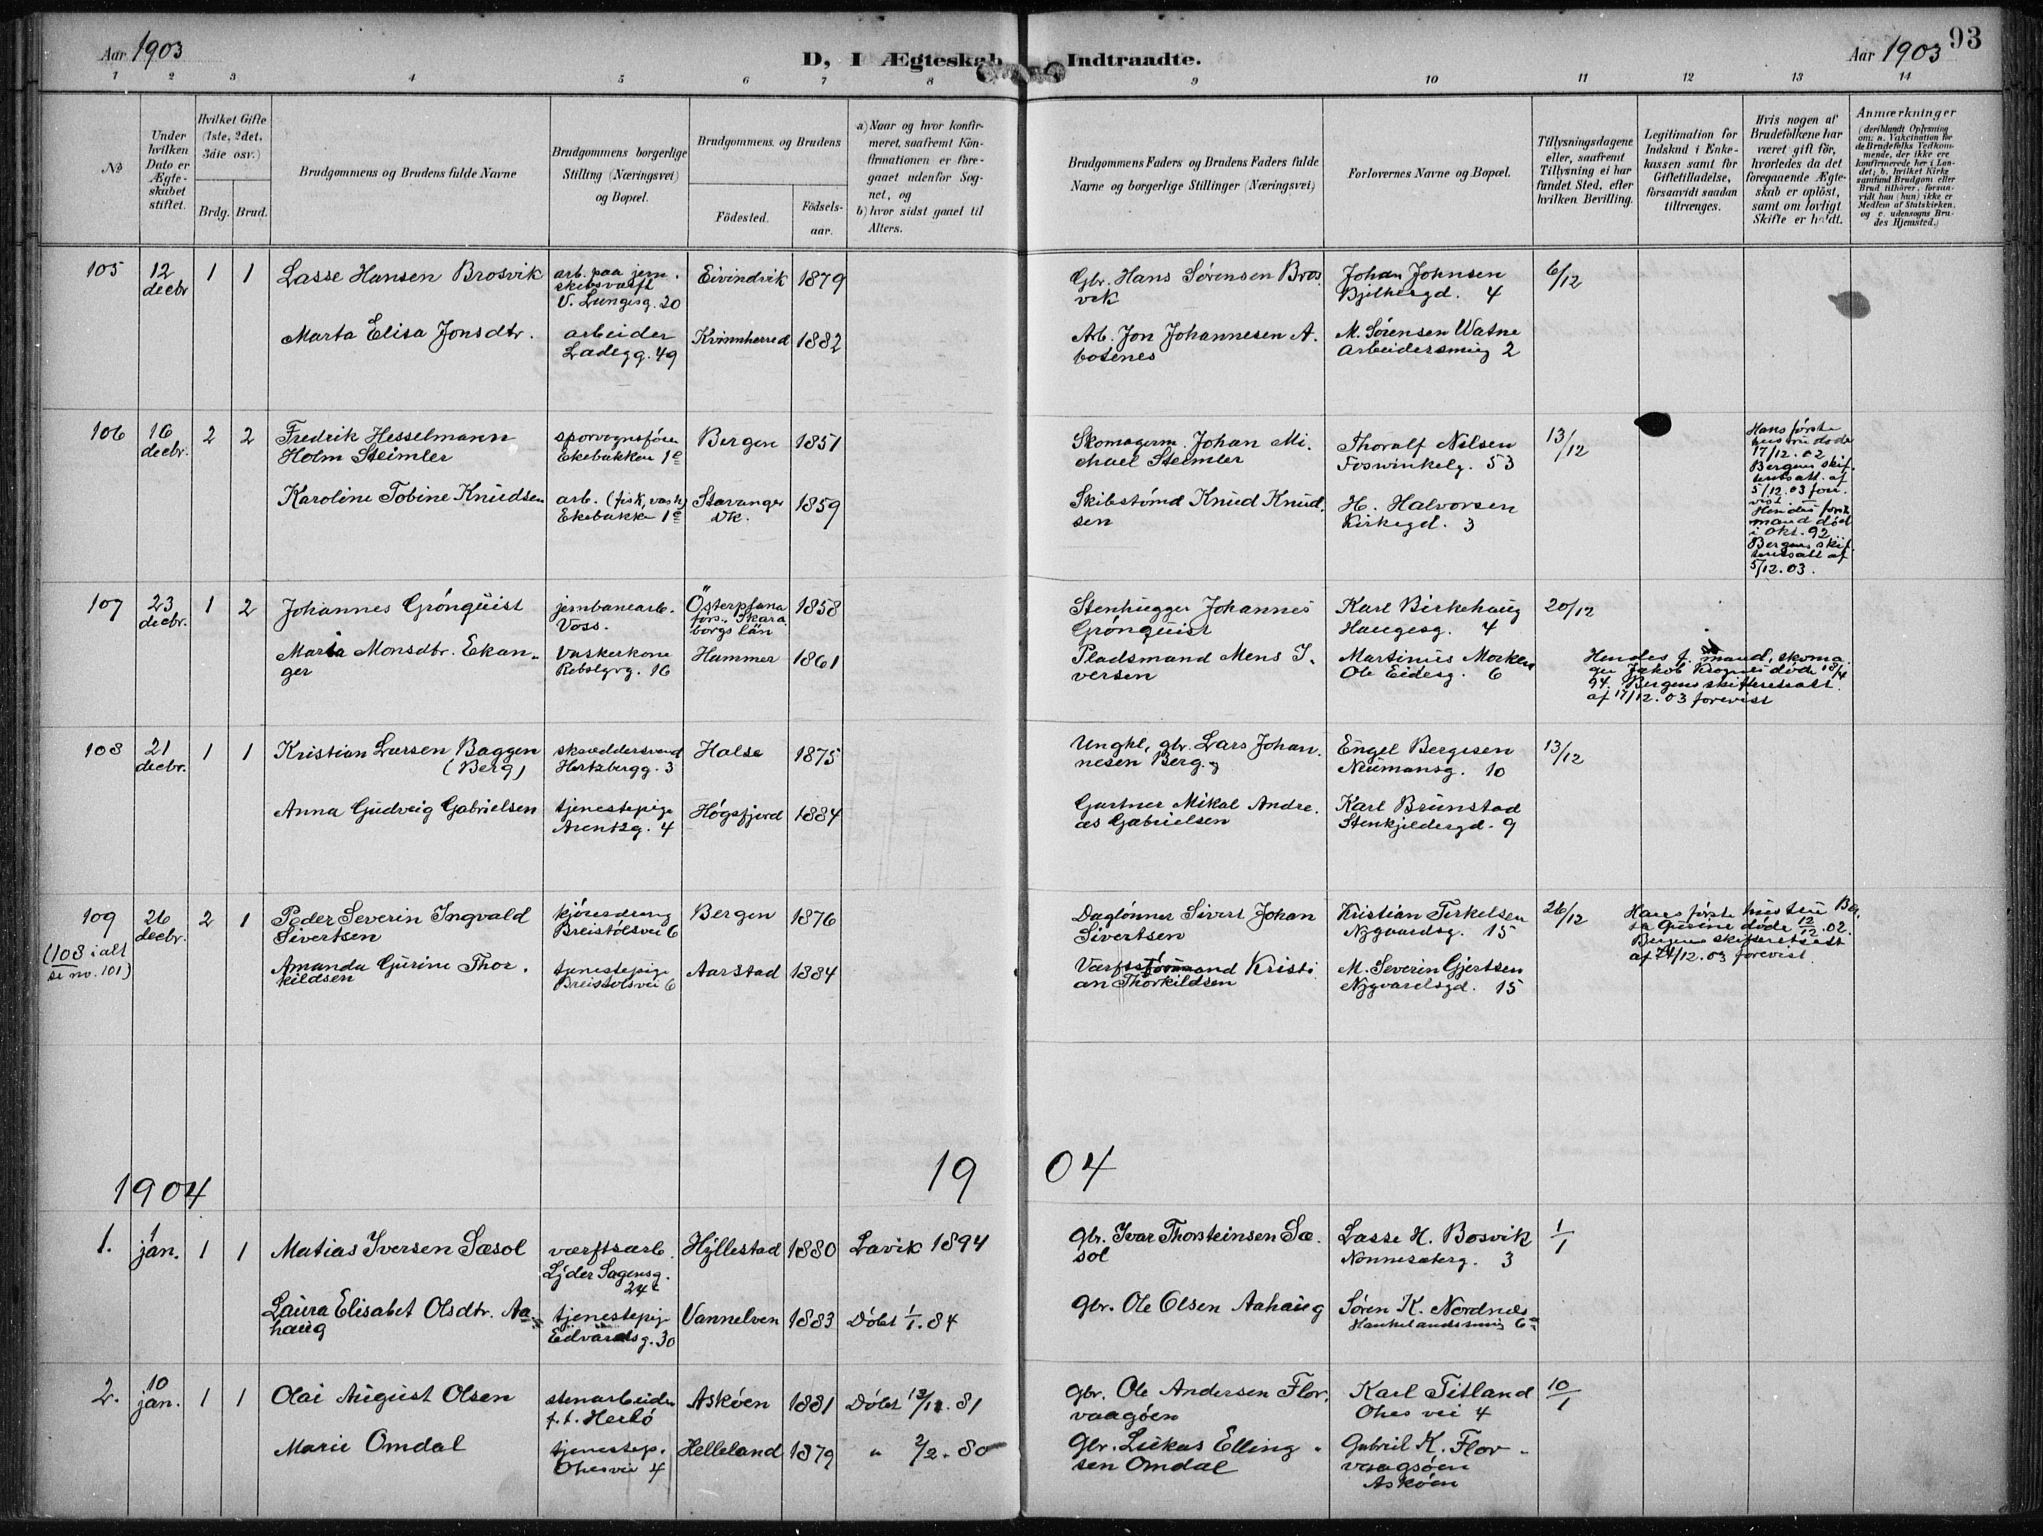 Aar 1903
D, I Ægteskab Indtraadte.
Aar 1903
93
1 2 3 4 5 6 7 8 9 10 11 12 13 14
No
Under hvilken Dato er Ægteskabet stiftet.
Hvilket Gifte (1ste, 2det, 3die osv.)
Brdg. Brud.
Brudgommens og Brudens fulde Navne
Brudgommens borgerlige Stilling (Næringsvei) og Bopæl.
Brudgommens og Brudens
Födested. Födselsaar.
a) Naar og hvor konfirmeret, saafremt Konfirmationen er foregaaet udenfor Sognet, og
b) hvor sidst gaaet til Alters.
Brudgommens Faders og Brudens Faders fulde Navne og borgerlige Stillinger (Næringsvei)
Forlovernes Navne og Bopæl.
Tillysningsdagene eller, saafremt Tillysning ei har fundet Sted, efter hvilken Bevilling.
Legitimation for Indskud i Enkekassen samt for Giftetilladelse, forsaavidt saadan tiltrænges.
Hvis nogen af Brudefolkene har været gift för, hvorledes da det foregaaende Ægteskab er oplöst, samt om lovligt Skifte er holdt.
Anmærkninger
(deriblandt Oplysning om: a. Vakcination for de Brudefolks Vedkommende, der ikke ere konfirmerede her i Landet; b. hvilket Kirkesamfund Brudgom eller Brud tilhörer, forsaavidt han (hun) ikke er Medlem af Statskirken, og c. udensogns Brudes Hjemsted.)
105 12 decbr 1 1 Lasse Hansen Brosvik
arb. paa jern.
skibsværft
V. Lungesg. 20
Eivindvik 1879
Gbr. Hans Sørensen Bros
vik
Johan Johnsen
4
6/12
Marta Elisa Jonsdtr.
arbeider
Ladegg. 49
Kvinnherred 1882
Arb. Jon Johannesen A.
bosenes
M. Sørensen Watne
Arbeidersmug 2
106 16 decbr. 2 2 Fredrik Hesselmann
Holm Steimler
sporvognsfører
Ekebakken 1e
Bergen 1851
Skomagerm. Johan Mi.
chael Steimler
Thoralf Nilsen
Fosswinkelg. 53
13/12
Hans første
hustru døde
17/12. 02
Bergens skif.
teretsatt. af
5/12. 03 fore.
vist
Hendes første
mand død
i okt. 92
Bergens skif.
teretsatt af
5/12. 03.
Karoline Tobine Knudsen
arb. (fisk, vask)
Ekebakken 1e
Stavanger
Dk.
1859
Skibstømd Knud Knud.
sen
H. Halvorsen
Kirkegd. 3
107 23 decbr. 1 2 Johannes Grónquist
jernbanearb.
Voss.
Österplana
förs., Skara
borgs län
1858
Stenhugger Johannes
Grónquist
Karl Birkehaug
Haugesg. 4
20/12
Maria Monsdtr. Ekan.
ger
Vaskerkone
Rebslgrg. 16
Hammer 1861
Pladsmand Mons I.
versen
Martinus Morken
Ole Eidesg. 6
Hendes f. mand, skoma
ger Jakob Krognes døde 18/4
94. Bergens skifteretsatt.
af 17/12. 03 forevist
108 21 decbr. 1 1 Kristian Larsen Baggen
(Berg)
skræddersvend
Hertzbergg. 3
Halse 1875
Ungkl, gbr. Lars Johan.
nesen Berg
Engel Bergesen
Neumansg. 10
13/12
Anna Gudveig Gabrielsen
tjenestepige
Arentzg. 4
Høgsfjord 1884
Gartner Mikal Andre.
as Gabrielsen
Karl Brunstad
Stenkjeldergd. 9
109 26 decbr. 2 1 Peder Severin Ingvald
Sivertsen
(108 i alt
se no. 101)
kjøredreng
Breistølsvei 6
Bergen 1876
Daglønner Sivert Johan
Sivertsen
Kristian Terkelsen
Nygaardsg. 15
26/12
Hans første hustru Ber
døde 12/12. 02.
Bergens skifteretsatt
af 24/12. 03 forevist
Amanda Gurine Thor.
kildsen
tjenestepige
Breistølsvei 6
Aarstad 1884
Værftsformand Kristi
an Thorkildsen
M. Severin Gjertsen
Nygaardsgd. 15
1904 19 04
1. 1 jan. 1 1 Matias Iversen Sæsol
værftsarb.
Lyder Sagensg.
24c
Hyllestad 1880 Lavik 1894
Gbr. Ivar Thorsteinsen Sæ.
sol
Lasse H. Bosvik
Nonneseterg. 3
1/1
Laura Elisabet Olsdtr. Aa
haug
tjenestepig
Edvardsg. 30
Vannelven 1883 Døbt 1/1. 84
Gbr. Ole Olsen Aahaug
Søren K. Nordnes
6a
2. 10 jan. 1 1 Olai August Olsen
stenarbeider
f. t. Herlø
Askøen 1881 Døbt 13/11. 81
Gbr. Ole Andersen Flor.
vaagøen
Karl Titland
Ohes vei 4
10/1
Marie Omdal
tjenestep.
Ohesvei 4
Helleland 1879 " 2/2. 80
Gbr. Lukas Elling.
sen Omdal
Gabriel K. Flor.
vaagsøen
Askøen